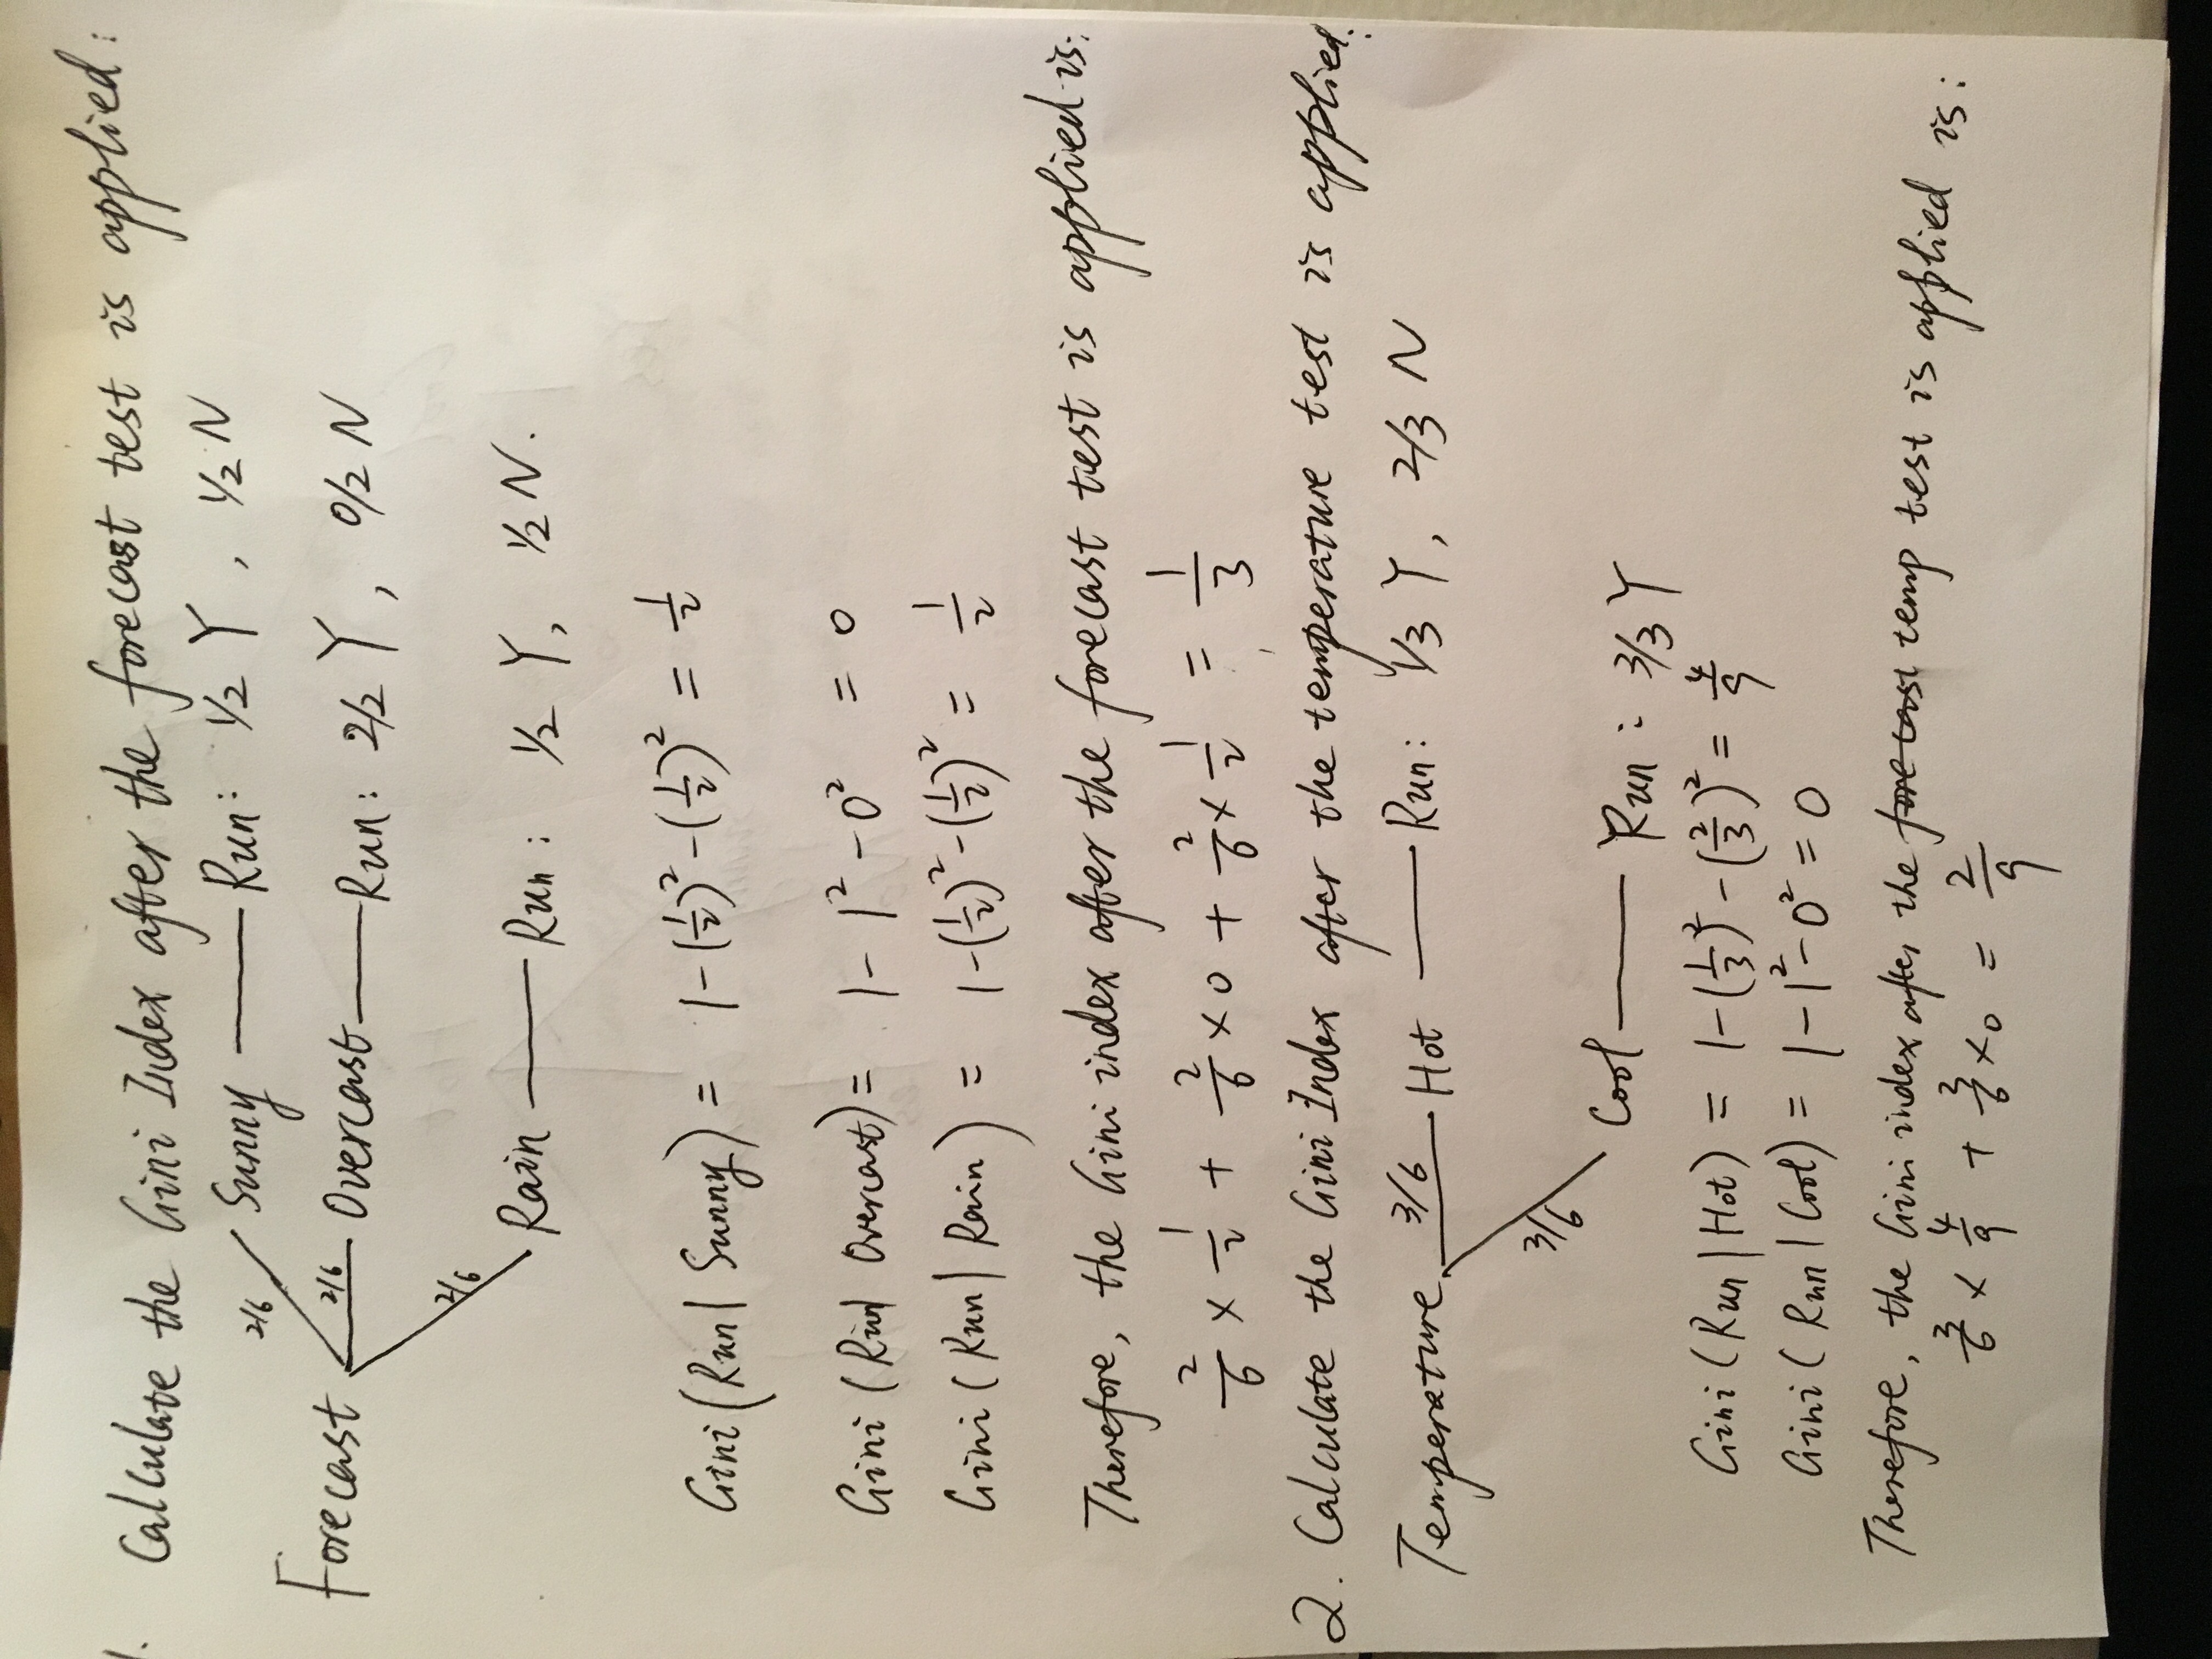 1. Calculate the Gini Index after the forecast test is applied:
2/6 Sunny — Run: 1/2 Y, 1/2 N
Forecast 2/6 Overcast — Run: 2/2 Y, 0/2 N
2/6 Rain — Run: 1/2 Y, 1/2 N.
Gini (Run | Sunny) = 1-(1/2)² -(1/2)² = 1/2
Gini (Run | Overcast) = 1- 1² - 0² = 0
Gini (Run | Rain) = 1-(1/2)² -(1/2)² = 1/2
Therefore, the Gini index after the forecast test is applied is:
2/6 × 1/2 + 2/6 × 0 + 2/6 × 1/2 = 1/3
2. Calculate the Gini Index after the temperature test is applied:
Temperature 3/6 Hot — Run: 1/3 Y, 2/3 N
3/6 Cool — Run: 3/3 Y
Gini (Run | Hot) = 1-(1/3)² -(2/3)² = 4/9
Gini (Run | Cool) = 1-1²-0² = 0
Therefore, the Gini index after the forecast temp test is applied is:
3/6 × 4/9 + 3/6 × 0 = 2/9